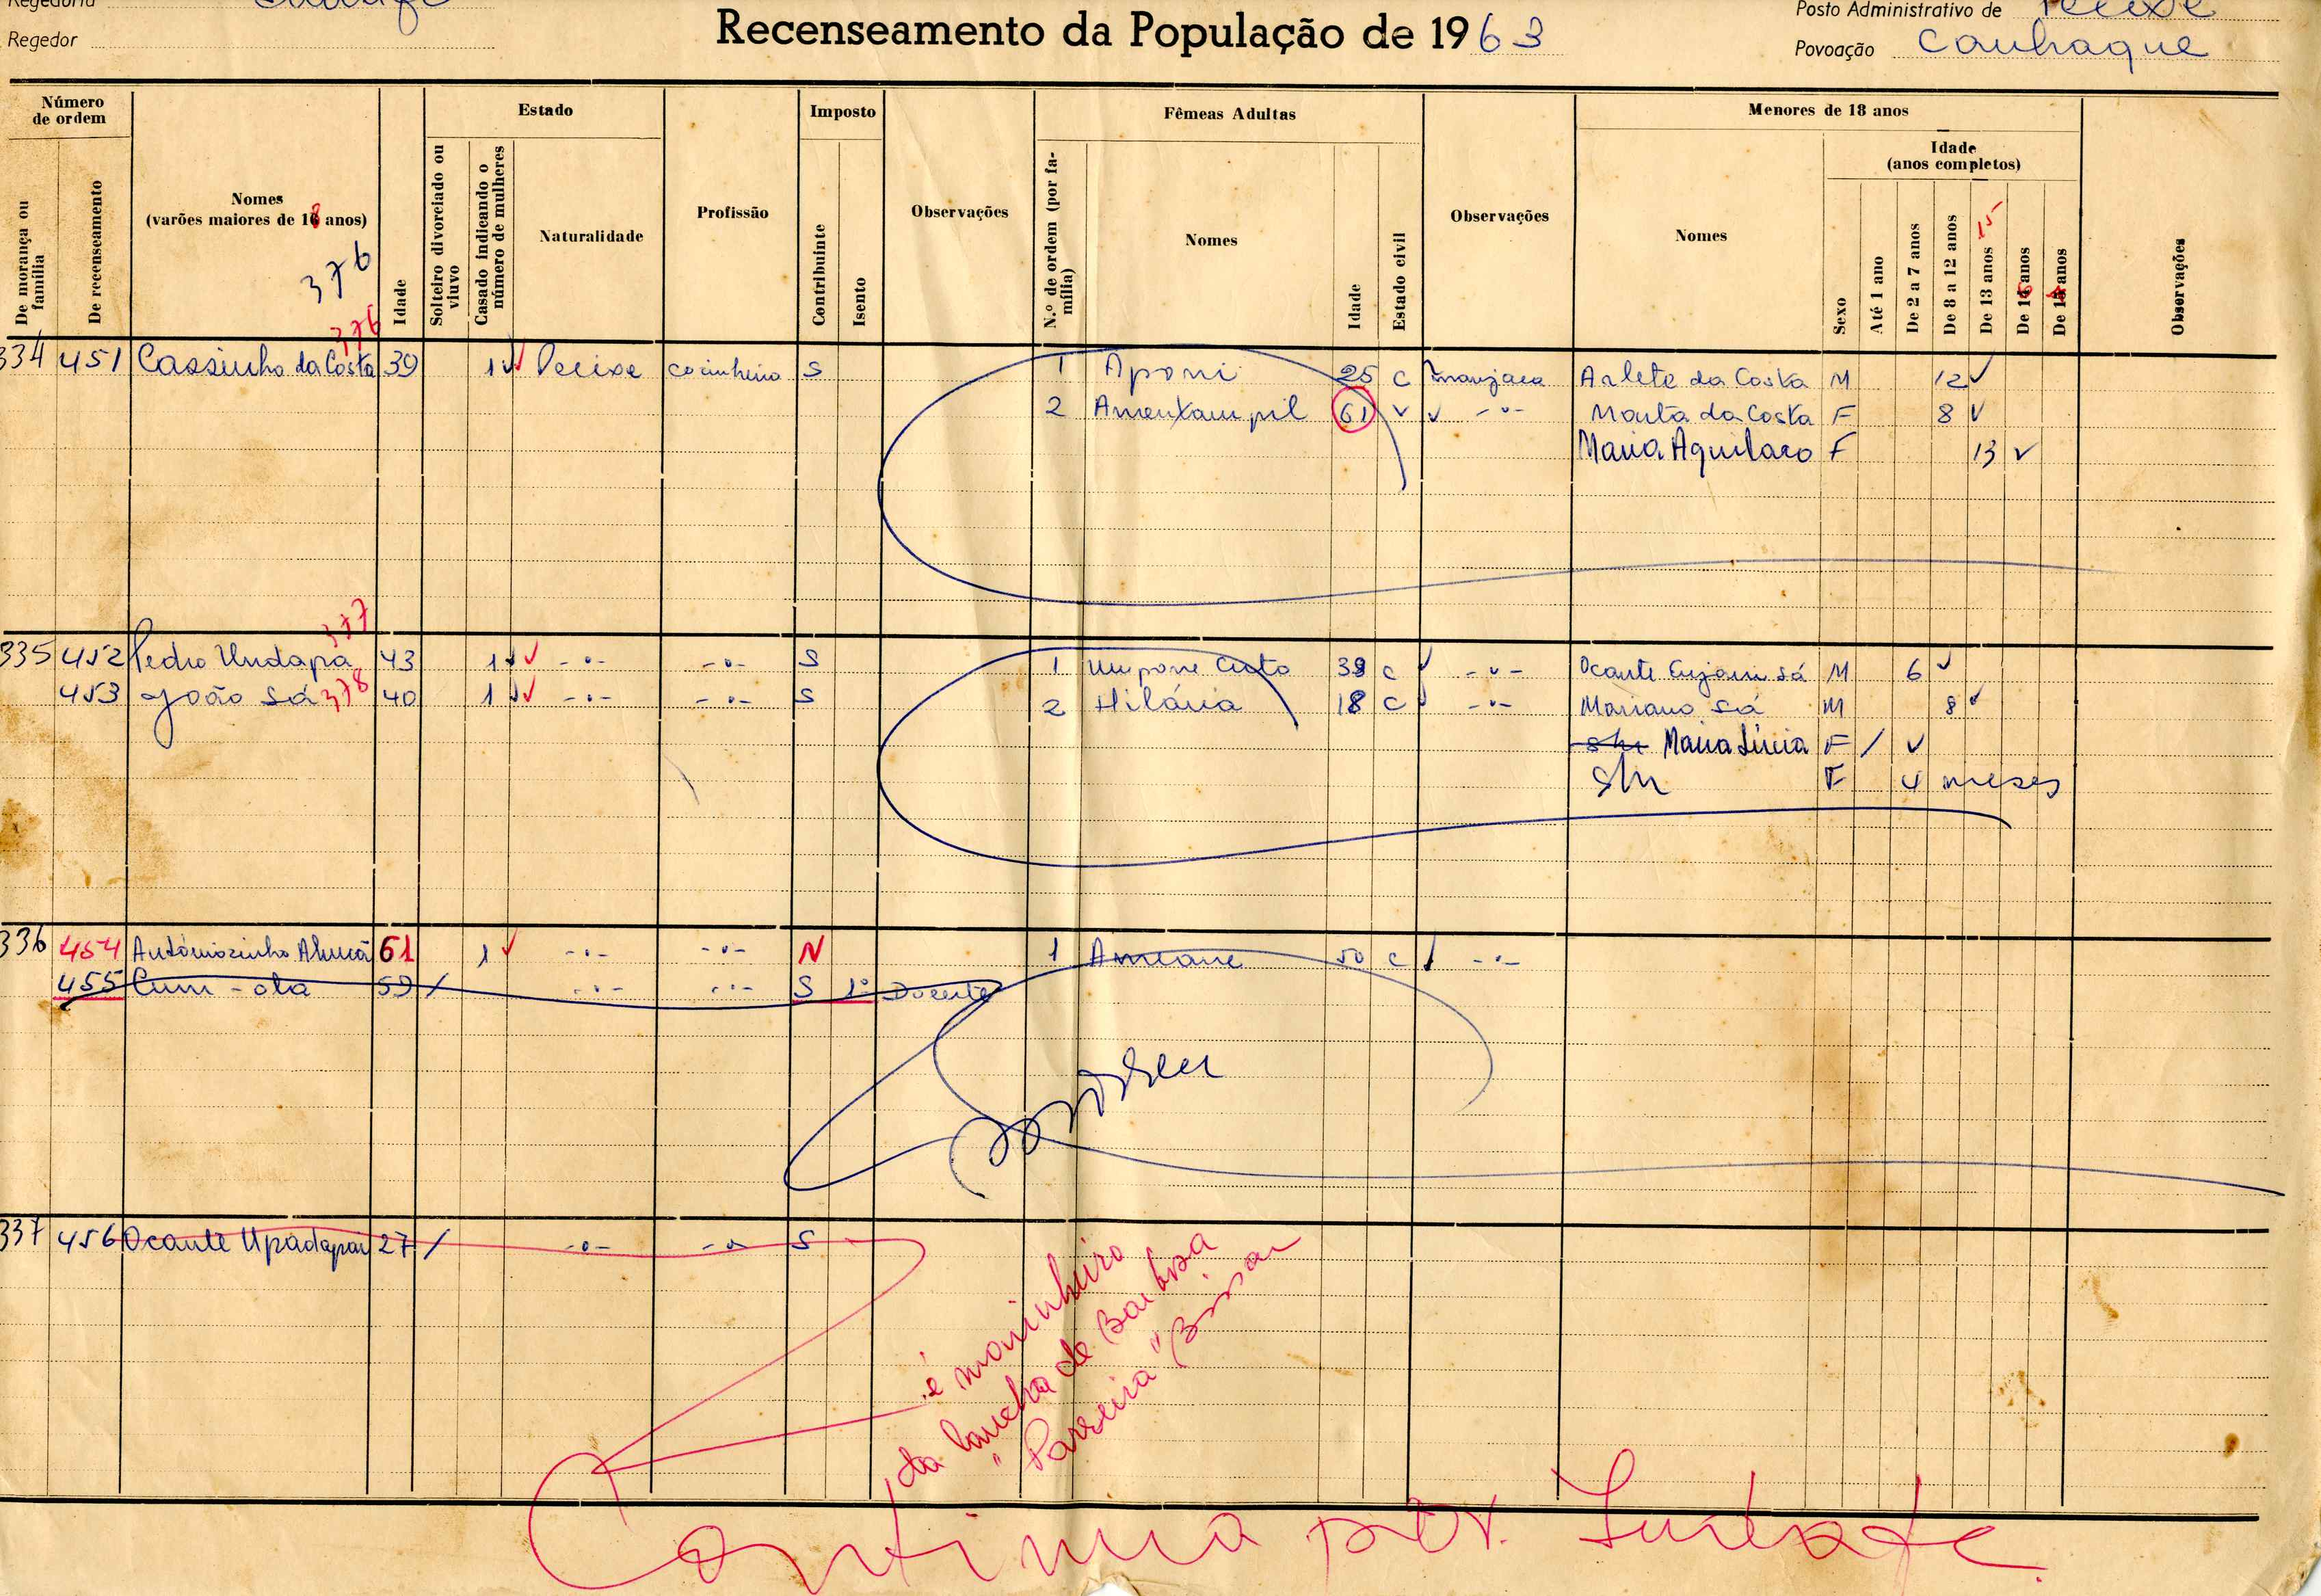 Regedoria
Regedor
Recenseamento da População de 1963
Posto Administrativo de Pecixe
Povoação Cauhaque
Número de ordem
De morança ou família
De recenseamento
Nomes
(varões maiores de 18 anos)
376
376
Idade
Estado
Solteiro divorciado ou viuvo
Casado indicando o número de mulheres
Naturalidade
Profissão
Imposto
Contribuinte
Isento
Observações
Fêmeas Adultas
N.º de ordem (por família)
Nomes
Idade
Estado civil
Observações
Menores de 18 anos
Nomes
Sexo
Idade
(anos completos)
Até 1 ano
De 2 a 7 anos
De 8 a 12 anos
De 13 anos 15
De 14 anos
De 15 anos
Observações
334 451 Cassinho da Costa 39 1 Pecixe cosinheiro S 1 Aponi 25 C manjaca Arlete da Costa M 12
2 61 V -"- Marta da Costa F 8
Maria Aquilaro F 13
377
335 452 Pedro Undapa 43 1 -"- -"- S 1 Umpone Cuto 39 C -"- Ocante Enjami Sá M 6
453 João Sá 378 40 1 -"- -"- S 2 Hilária 18 C -"- Mariano Sá M 8
s/n Maria Lúcia F /
s/n F 4 meses
336 454 Antóniozinho 61 1 -"- -"- N 1 Ameane 50 C -"-
455 Cum-ota 59 / -"- -"- S 1º Doente
337 456 Ocante Upadapau 27 / -"- -"- S
é marinheiro
da lancha de Barbosa
"Parreira" Bissau
Continua por